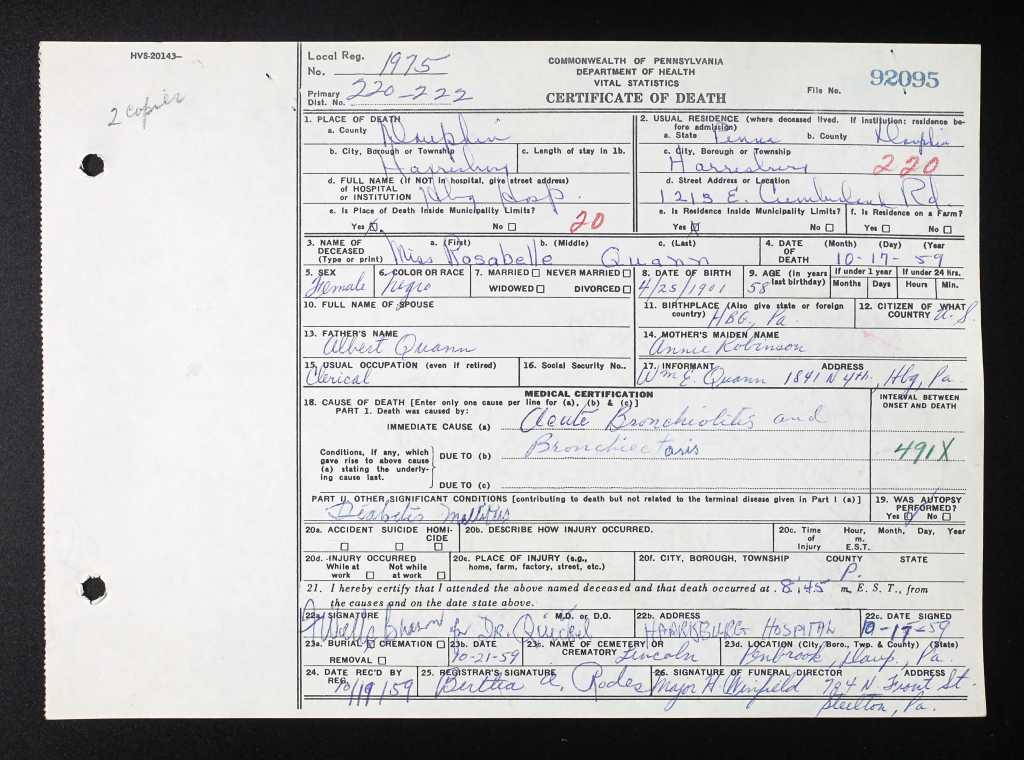 HVS-20143—
2 copies
Local Reg.
No. 1975
Primary
Dist. No. 220-222
COMMONWEALTH OF PENNSYLVANIA
DEPARTMENT OF HEALTH
VITAL STATISTICS
CERTIFICATE OF DEATH
File No.
92095
1. PLACE OF DEATH
a. County Dauphin
b. City, Borough or Township
Harrisburg
c. Length of stay in 1b.
d. FULL NAME (If NOT in hospital, give street address)
of HOSPITAL
or INSTITUTION Hbg Hosp.
e. Is Place of Death Inside Municipality Limits?
Yes No
20
2. USUAL RESIDENCE (where deceased lived. If institution: residence be-
fore admission)
a. State Penna b. County Dauphin
c. City, Borough or Township
Harrisburg 220
d. Street Address or Location
1213 E. Cumberland Rd.
e. Is Residence Inside Municipality Limits?
Yes No
f. Is Residence on a Farm?
Yes No
3. NAME OF
DECEASED
(Type or print)
a. (First) b. (Middle) c. (Last)
Miss Rosabelle Quann
4. DATE
OF
DEATH
(Month) (Day) (Year
10-17-59
5. SEX
Female
6. COLOR OR RACE
Negro
7. MARRIED NEVER MARRIED
WIDOWED DIVORCED
8. DATE OF BIRTH
4/25/1901
9. AGE (in years
last birthday)
58
If under 1 year
Months Days
If under 24 hrs.
Hours Min.
10. FULL NAME OF SPOUSE
11. BIRTHPLACE (Also give state or foreign
country) HBG, Pa.
12. CITIZEN OF WHAT
COUNTRY U.S.
13. FATHER'S NAME
Albert Quann
14. MOTHER'S MAIDEN NAME
Annie Robinson
15. USUAL OCCUPATION (even if retired)
Clerical
16. Social Security No..
17. INFORMANT ADDRESS
Wm E. Quann 1841 N 4th., Hbg, Pa.
MEDICAL CERTIFICATION
18. CAUSE OF DEATH [Enter only one cause per line for (a), (b) & (c)]
PART I. Death was caused by:
IMMEDIATE CAUSE (a) Acute Bronchiolitis and
Conditions, if any, which
gave rise to above cause
(a) stating the underly-
ing cause last.
DUE TO (b) Bronchiectasis
DUE TO (c)
INTERVAL BETWEEN
ONSET AND DEATH
491X
PART II. OTHER SIGNIFICANT CONDITIONS [contributing to death but not related to the terminal disease given in Part I (a)]
Diabetis Mellitus
19. WAS AUTOPSY
PERFORMED?
Yes No
20a. ACCIDENT SUICIDE HOMI-
CIDE
20b. DESCRIBE HOW INJURY OCCURRED.
20c. Time
of
Injury
Hour, Month, Day, Year
m.
E.S.T.
20d. INJURY OCCURRED
While at Not while
work at work
20e. PLACE OF INJURY (e.g.,
home, farm, factory, street, etc.)
20f. CITY, BOROUGH, TOWNSHIP COUNTY STATE
21. I hereby certify that I attended the above named deceased and that death occurred at 8:45 P. m, E. S. T., from
the causes and on the date state above.
22a. SIGNATURE M.D. or D.O.
for DR.
22b. ADDRESS
HARRISBURG HOSPITAL
22c. DATE SIGNED
10-17-59
23a. BURIAL CREMATION
REMOVAL
23b. DATE
10-21-59
23c. NAME OF CEMETERY OR
CREMATORY Lincoln
23d. LOCATION (City, Boro., Twp. & County) (State)
Penbrook, Daup., Pa.
24. DATE REC'D BY
REG. 10/19/59
25. REGISTRAR'S SIGNATURE
Bertha A. Rodes
26. SIGNATURE OF FUNERAL DIRECTOR ADDRESS
Major H Winfield 794 N Front St.
Steelton, Pa.